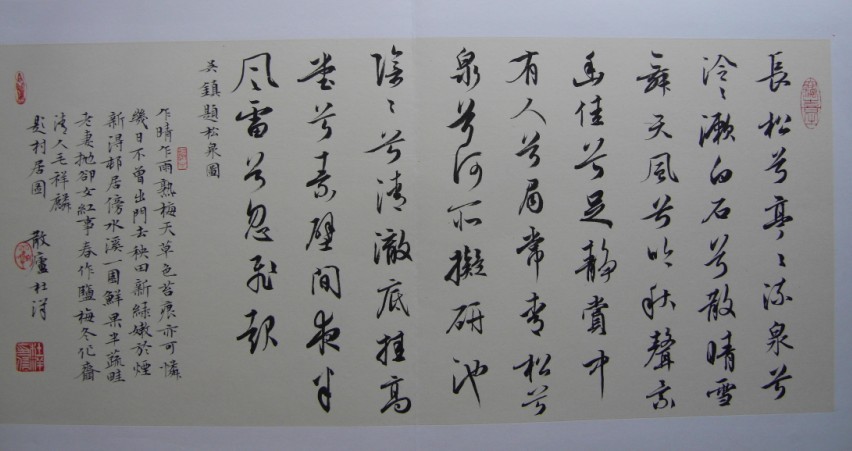 長松兮亭亭流泉兮
泠泠漱白石兮散晴雪
舞天風兮吟秋聲景
幽佳兮足靜賞中
有人兮眉常青松兮
泉兮何所擬研池
陰陰兮清澈底挂高
堂兮素壁間夜半
风雷兮忽飛起
吴鎮題松泉圖
乍晴乍雨熟梅天草色苔痕亦可憐
幾日不曾出門去秧田新綠嫩於煙
新淂邨居傍水溪一園鮮果半蔬畦
老妻抛卻女紅事春作鹽梅冬作齏
清人毛祥麟
題村居圖
散廬杜淂